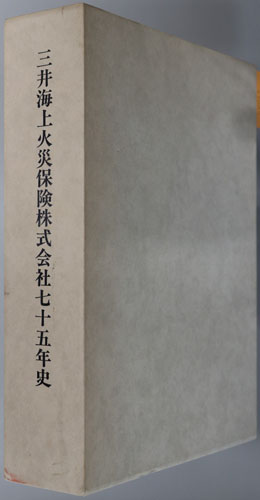 三井海上火災保険株式会社七十五年史